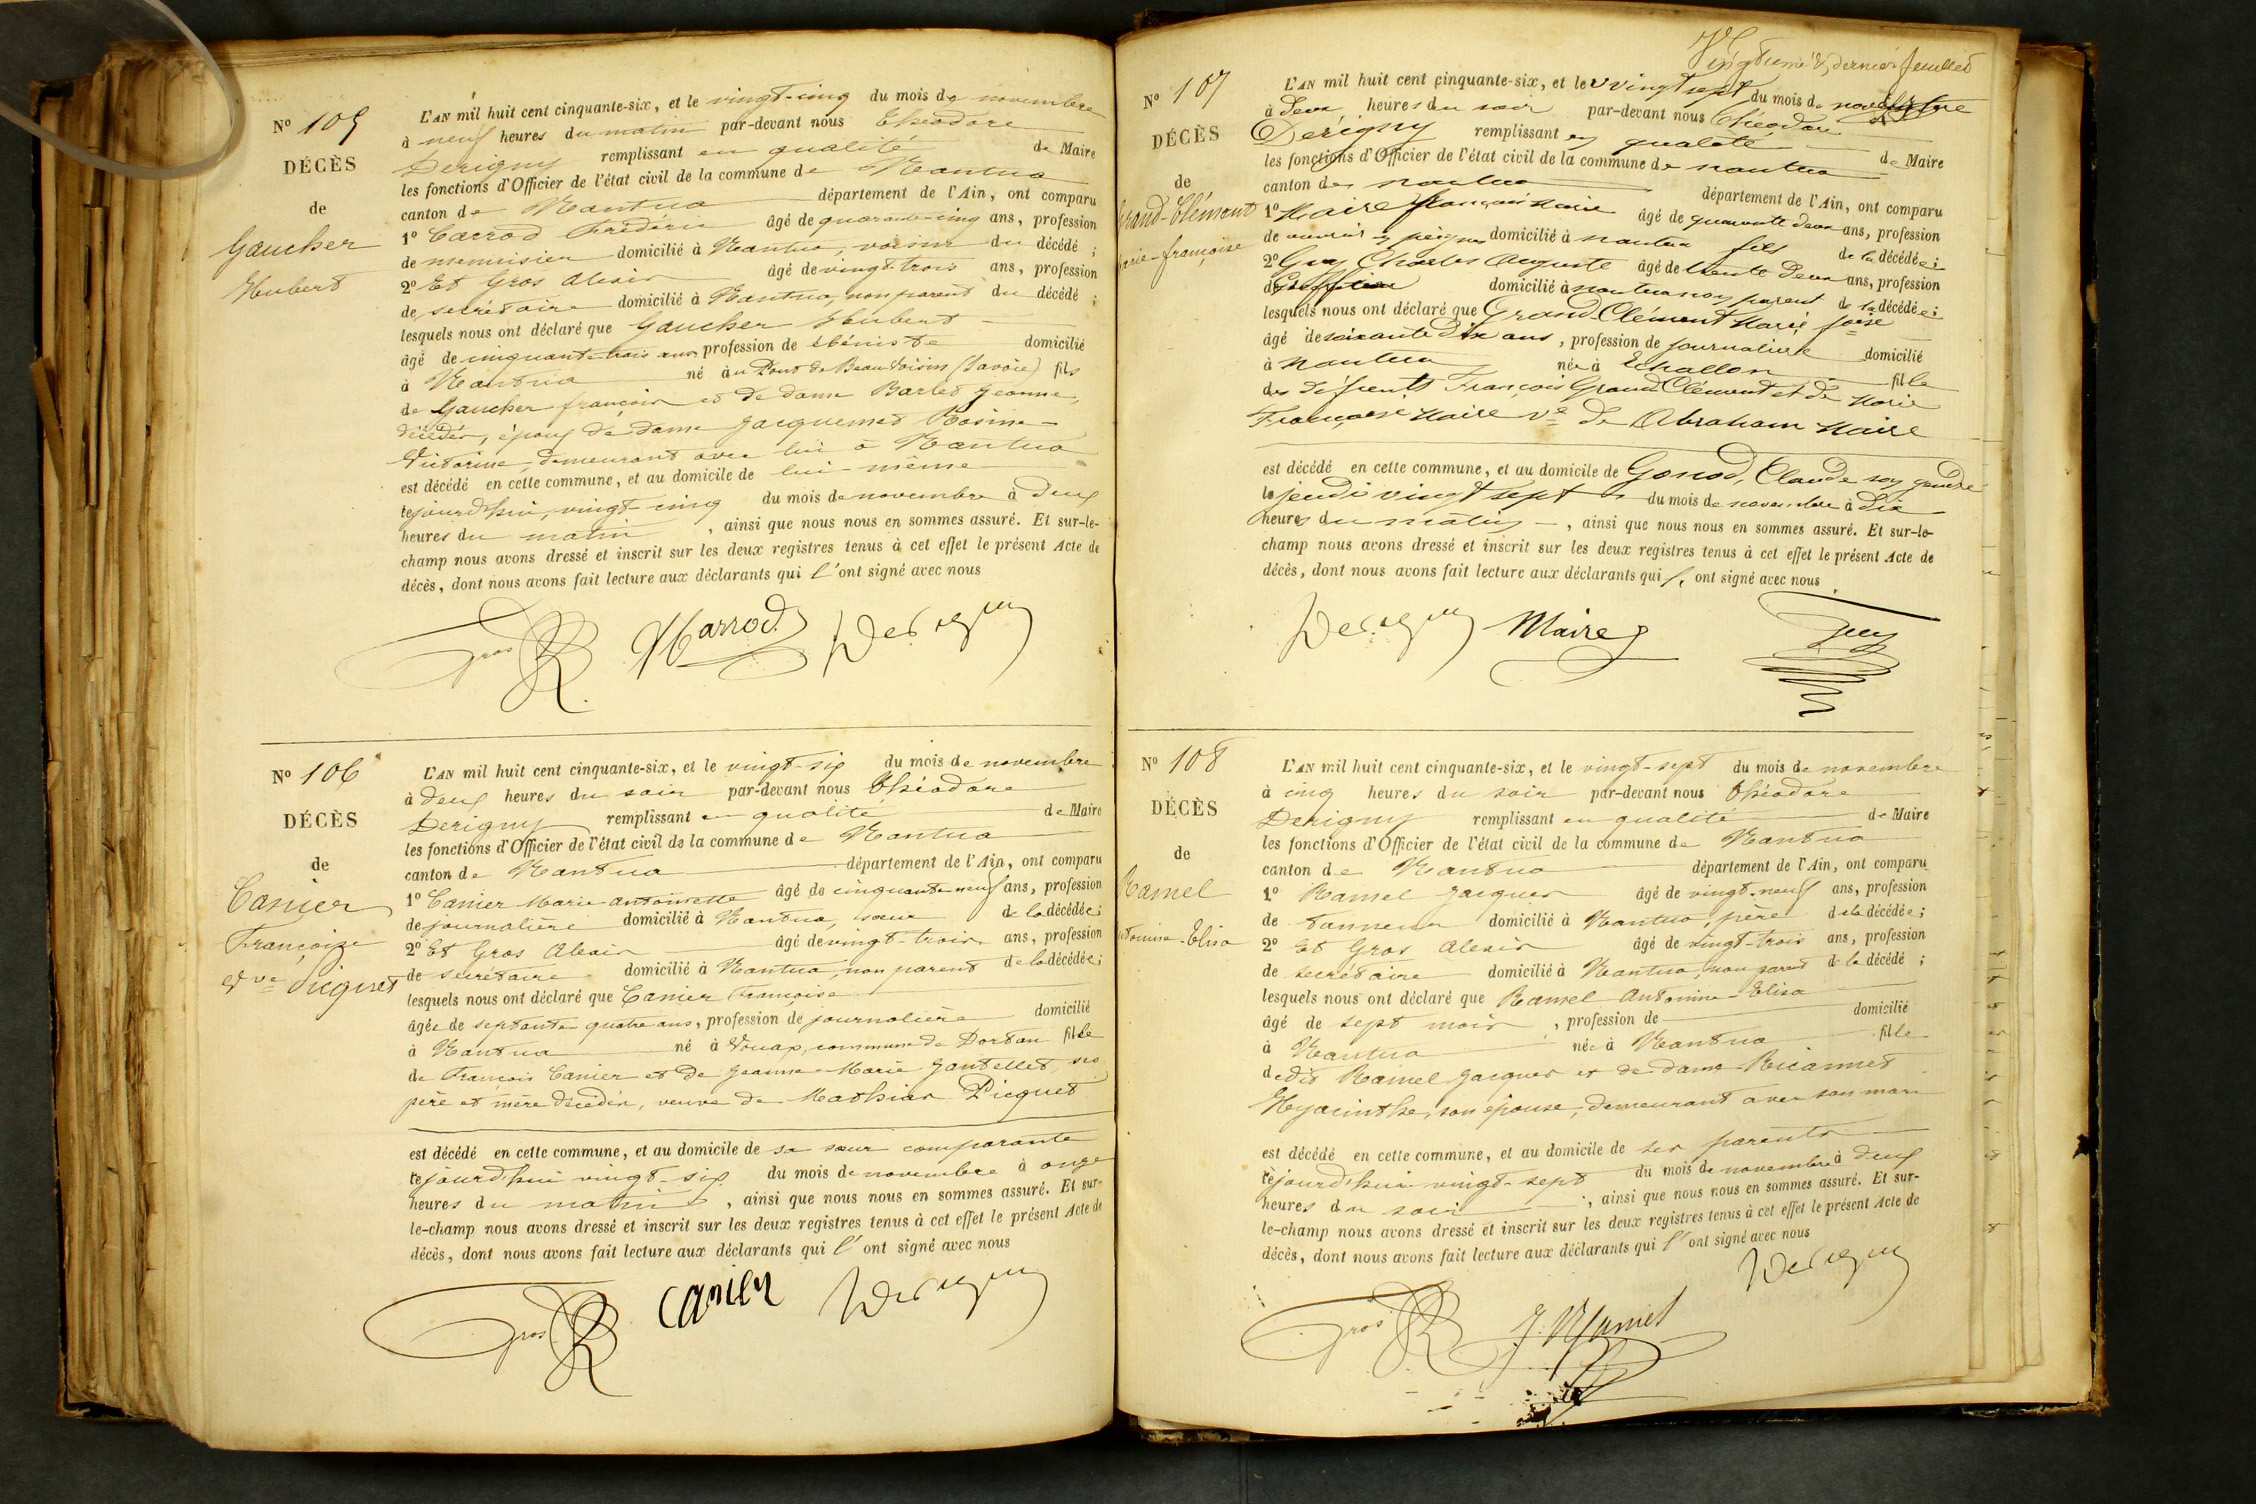 Nº 105
DÉCÈS
de
Gaucher
Hubert
L'AN mil huit cent cinquante-six, et le vingt-cinq du mois de novembre
à neuf heures du matin par-devant nous Théodore
Derigny remplissant en qualité de Maire
les fonctions d'Officier de l'état civil de la commune de Nantua
canton de Nantua département de l'Ain, ont comparu
1º Carrod Frédéric âgé de quarante-cinq ans, profession
de menuisier domicilié à Nantua, voisin du décédé ;
2º Et Gros Alexis âgé de vingt-trois ans, profession
de secrétaire domicilié à Nantua, non parent du décédé ;
lesquels nous ont déclaré que Gaucher Hubert
âgé de cinquante-trois ans profession de ébéniste domicilié
à Nantua né au Pont de Beauvoisin (Savoie) fils
de Gaucher françois et de dame Barlet Jeanne,
décédés, époux de dame Jacquemet Rosine-
Victorine, demeurant avec lui à Nantua
est décédé en cette commune, et au domicile de lui-même
cejourd'hui, vingt-cinq du mois de novembre à deux
heures du matin, ainsi que nous nous en sommes assuré. Et sur-le-
champ nous avons dressé et inscrit sur les deux registres tenus à cet effet le présent Acte de
décès, dont nous avons fait lecture aux déclarants qui l'ont signé avec nous
Gros Carrod Derigny
Nº 106
DÉCÈS
de
Canier
Françoise
et ve Picquet
L'AN mil huit cent cinquante-six, et le vingt-six du mois de novembre
à deux heures du soir par-devant nous Théodore
Derigny remplissant en qualité de Maire
les fonctions d'Officier de l'état civil de la commune de Nantua
canton de Nantua département de l'Ain, ont comparu
1º Canier Marie antoinette âgé de cinquante-neuf ans, profession
de journalière domicilié à Nantua, sœur de la décédée ;
2º Et Gros Alexis âgé de vingt-trois ans, profession
de secrétaire domicilié à Nantua, non parent de la décédée ;
lesquels nous ont déclaré que Canier Françoise
âgée de septante-quatre ans, profession de journalière domicilié
à Nantua né à Vouax, commune de Dortan fille
de François Canier et de Jeanne-Marie Gantellet, ses
père et mère décédés, veuve de Mathias Picquet
est décédé en cette commune, et au domicile de sa sœur comparante
cejourd'hui vingt-six du mois de novembre à onze
heures du matin, ainsi que nous nous en sommes assuré. Et sur-
le-champ nous avons dressé et inscrit sur les deux registres tenus à cet effet le présent Acte de
décès, dont nous avons fait lecture aux déclarants qui l'ont signé avec nous
Gros Canier Derigny
Vingtième & dernier feuillet
Nº 107
DÉCÈS
de
Grand-Clément
Marie-françoise
L'AN mil huit cent cinquante-six, et le vingt sept du mois de novembre
à deux heures du soir par-devant nous Théodore
Derigny remplissant en qualité de Maire
les fonctions d'Officier de l'état civil de la commune de nantua
canton de nantua département de l'Ain, ont comparu
1º Maire françois Marie âgé de quarante deux ans, profession
de ouvrier en peignes domicilié à nantua fils de la décédée ;
2º Guy Charles Auguste âgé de trente deux ans, profession
de domicilié à nantua non parent de la décédée ;
lesquels nous ont déclaré que Grand Clément Marie foise
âgé de soixante dix ans, profession de journalière domicilié
à nantua née à Echallon fille
des défunts François Grand Clément et de Marie
Françoise Maire ve de Abraham Maire
est décédé en cette commune, et au domicile de Gonod, Claude son gendre
le jeudi vingt sept du mois de novembre à dix
heures du matin, ainsi que nous nous en sommes assuré. Et sur-le-
champ nous avons dressé et inscrit sur les deux registres tenus à cet effet le présent Acte de
décès, dont nous avons fait lecture aux déclarants qui l'ont signé avec nous
Derigny Maire Guy
Nº 108
DÉCÈS
de
Ramel
Antonine-Elisa
L'AN mil huit cent cinquante-six, et le vingt-sept du mois de novembre
à cinq heures du soir par-devant nous Théodore
Derigny remplissant en qualité de Maire
les fonctions d'Officier de l'état civil de la commune de Nantua
canton de Nantua département de l'Ain, ont comparu
1º Ramel Jacques âgé de vingt-neuf ans, profession
de tanneur domicilié à Nantua, père de la décédée ;
2º Et Gros Alexis âgé de vingt-trois ans, profession
de secrétaire domicilié à Nantua, non parent de la décédé ;
lesquels nous ont déclaré que Ramel Antonine-Elisa
âgé de sept mois, profession de domicilié
à Nantua née à Nantua fille
de dit Ramel Jacques et de dame Ricannet
Hyacinthe, son épouse, demeurant avec son mari
est décédé en cette commune, et au domicile de ses parents
cejourd'hui vingt-sept du mois de novembre à deux
heures du soir, ainsi que nous nous en sommes assuré. Et sur-
le-champ nous avons dressé et inscrit sur les deux registres tenus à cet effet le présent Acte de
décès, dont nous avons fait lecture aux déclarants qui l'ont signé avec nous
Derigny
Gros J. Ramel